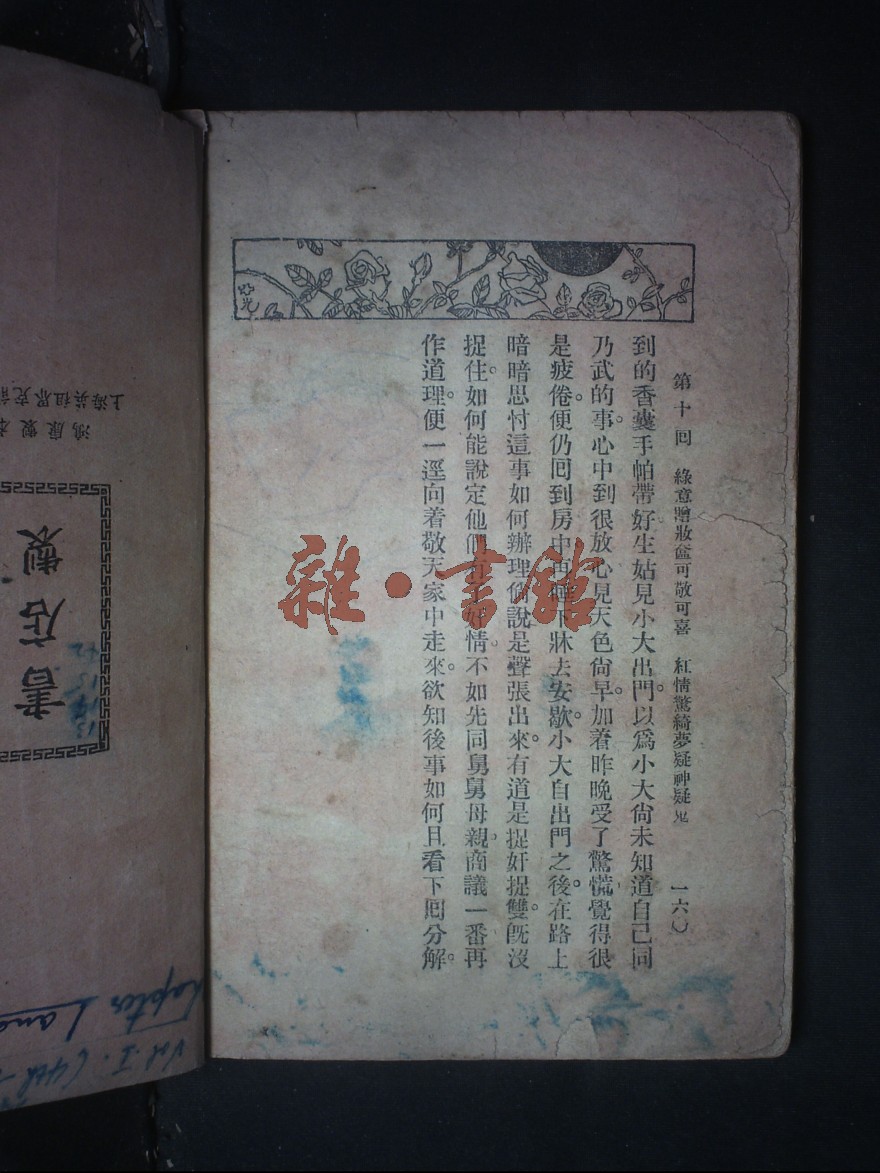 第十回　綠意贈妝奩可敬可喜　紅情驚綺夢疑神疑鬼　一六〇
到的香囊手帕帶好。生姑見小大出門。以爲小大尙未知道自己同
乃武的事。心中到很放心。見天色尙早。加着昨晚受了驚慌。覺得很
是疲倦。便仍回到房中再睡下牀去安歇。小大自出門之後。在路上
暗暗思忖這事如何辦理。倘說是聲張出來。有道是捉奸捉雙。旣沒
捉住。如何能說定他們有奸情。不如先同舅舅母親。商議一番。再
作道理。便一逕向着敬天家中走來。欲知後事如何。且看下回分解。
雜·書館
上海英租界克
鴻康製
書店製
Vol I.